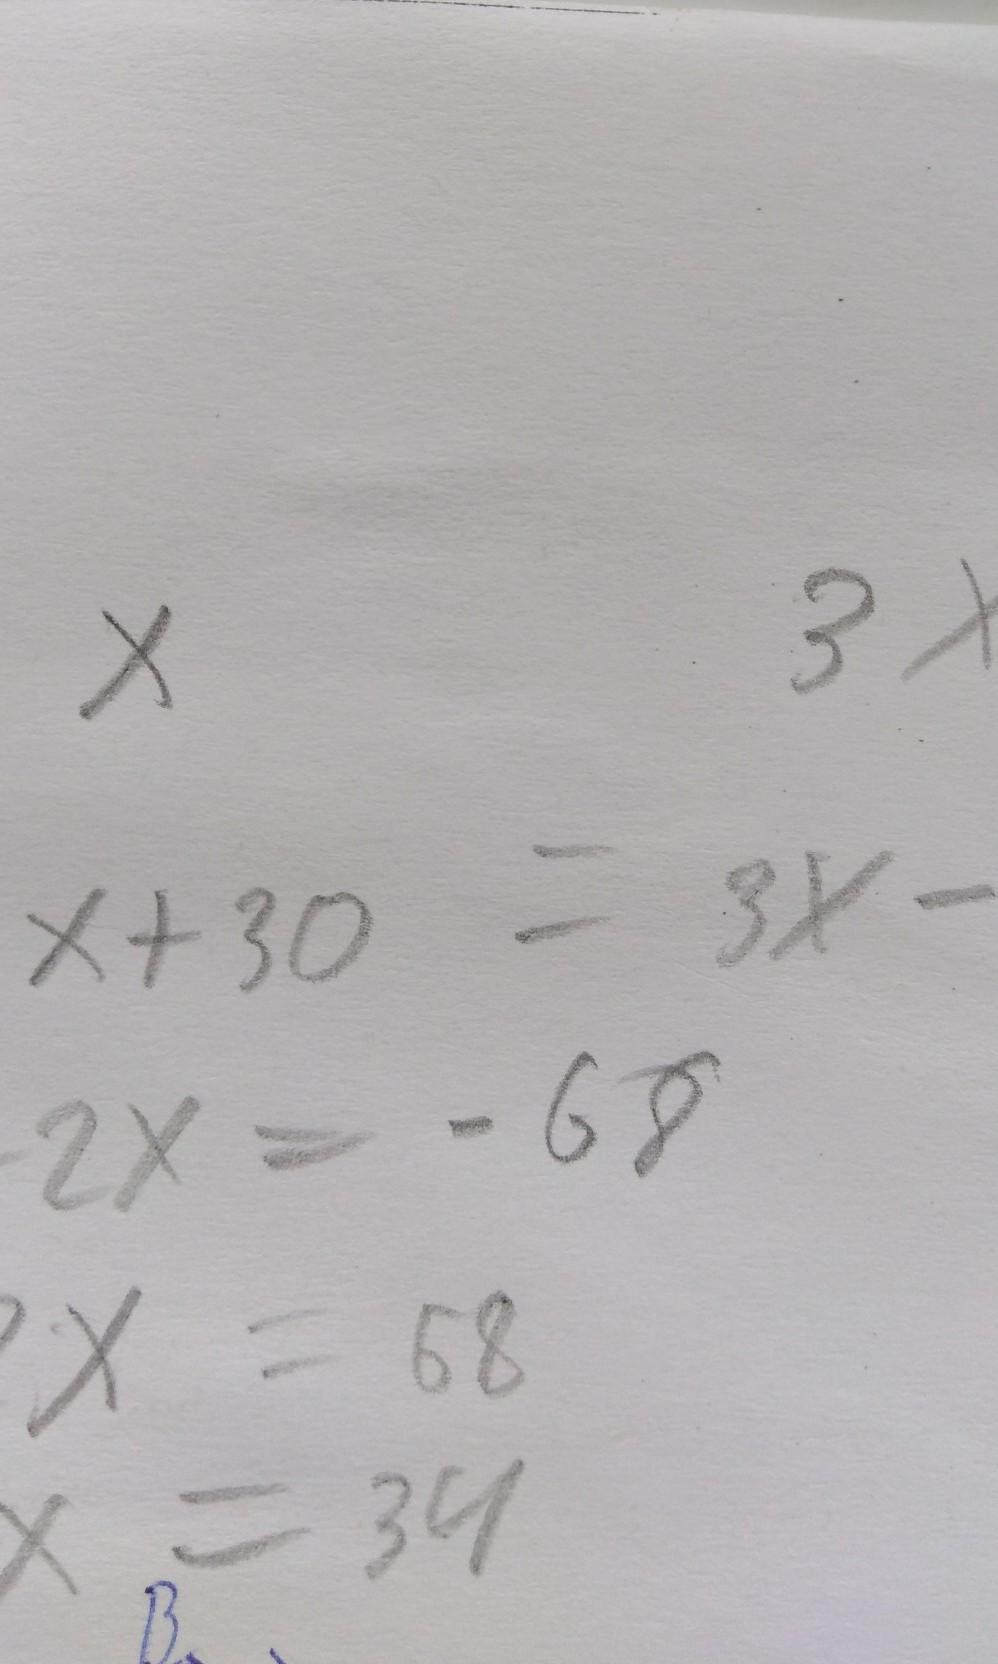 x 3x
x+30 = 3x-
-2x = -68
2x = 68
x = 34